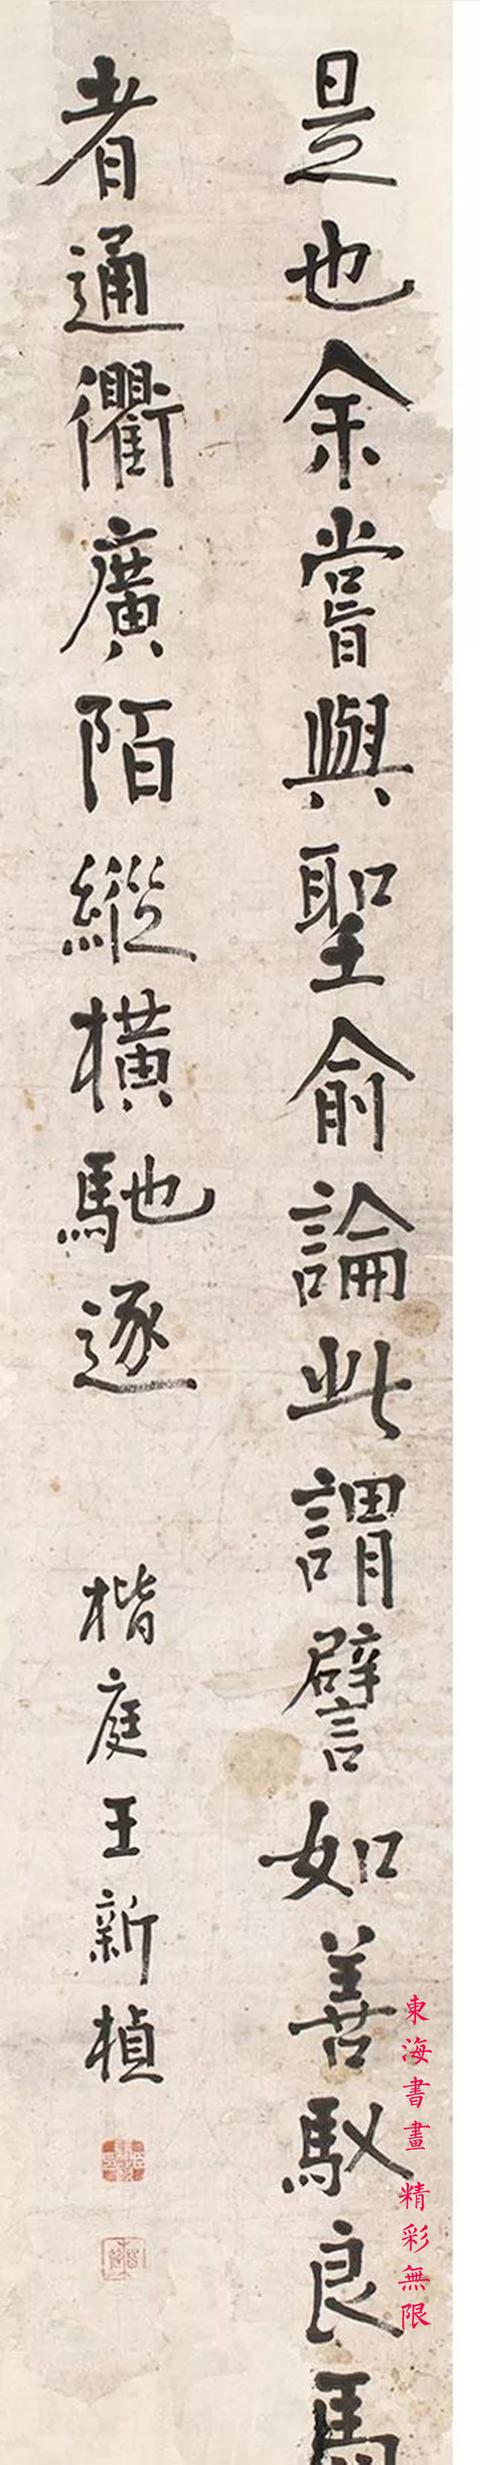 是也余嘗與聖俞論此謂譬如善馭良馬
者通衢廣陌縱橫馳逐
楷庭王新楨
東海書畫 精彩無限